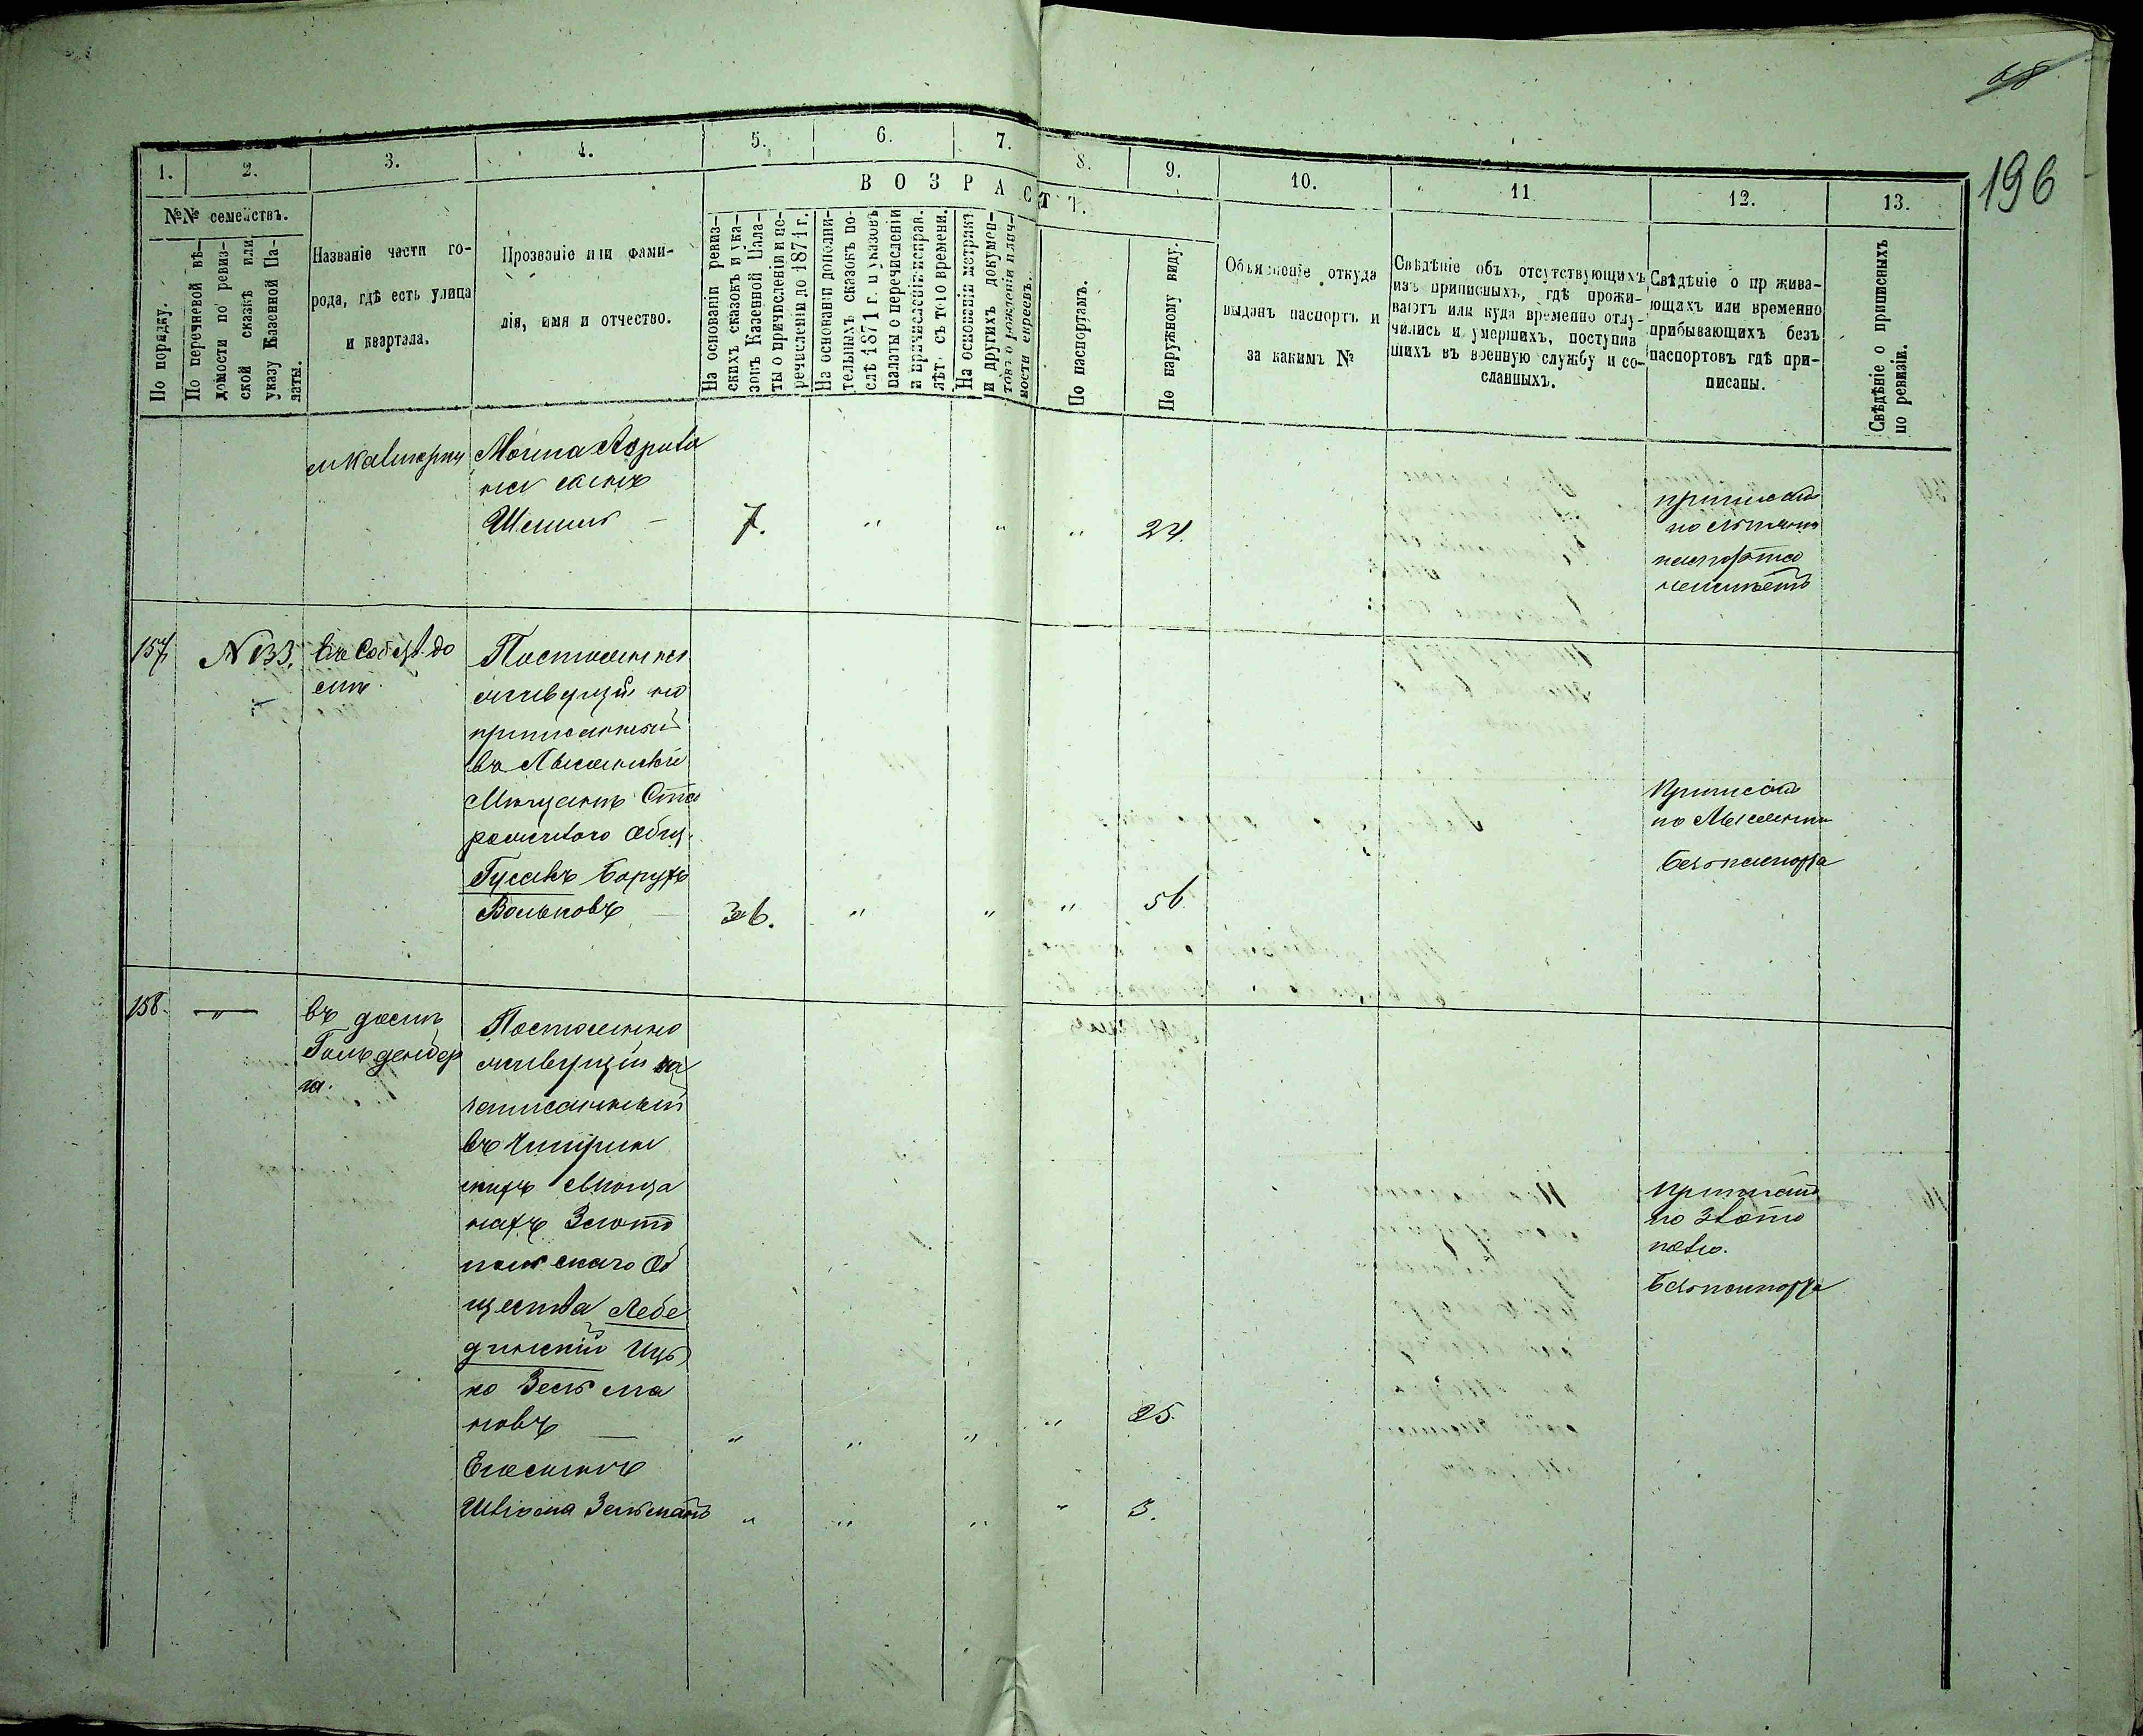 68
196
1.
2.
3.
4.
5.
6.
7.
8.
9.
10.
11
12.
13.
№№ семействъ.
По порядку.
По перечневой вѣ-
домости по ревиз-
ской сказкѣ или
указу Казенной Па-
латы.
Названіе части го-
рода, гдѣ есть улица
и квартала.
Прозваніе или фами-
лія, имя и отчество.
ВОЗРАСТЪ.
На основаніи ревиз-
скихъ сказокъ и ука-
зовъ Казенной Пала-
ты о причисленіи и пе-
речисленіи до 1871 г.
На основаніи дополни-
тельныхъ сказокъ по-
слѣ 1871 г. и указовъ
палаты о перечисленіи
и причисленіи исправ.
лѣтъ съ того времени.
На основаніи метрикъ
и другихъ докумен-
товъ о рожденіи и лич-
ности евреевъ.
По паспортамъ.
По наружному виду.
Объясненіе откуда
выданъ паспортъ и
за какимъ №
Свѣдѣніе объ отсутствующихъ
изъ приписныхъ, гдѣ прожи-
ваютъ или куда временно отлу-
чились и умершихъ, поступив
шихъ въ военную службу и со-
сланныхъ.
Свѣдѣніе о прожива-
ющихъ или временно
прибывающихъ безъ
паспортовъ гдѣ при-
писаны.
Свѣдѣніе о приписныхъ
по ревизіи.
сынъ
7.
24.
157
N 133.
въ собст. до
мѣ.
Постоянно
живущій но
приписанный
въ Лысянскій
Мѣщанъ Ста
общ.
Гусакъ Борухъ
Вольковъ
36.
56
по Лысянки
безъ паспорта
158.
въ домѣ
Гольденбер
га.
Постоянно
живущій но
записанный
въ Чигирин
скихъ мѣща
нахъ Злато
польскаго Об
щества Лебе
динскій Иць
ко Зельма
новъ
25.
по Злато
полю.
безъ паспорта
Его сынъ
Шлёма Зельманъ
3.